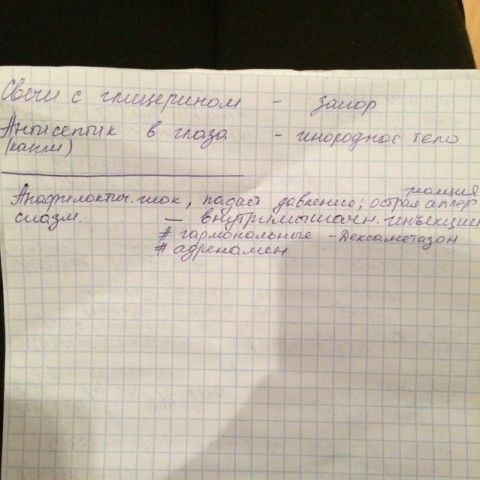 Свечи с глицерином - запор
Антисептик в глаза - инородное тело
(капли)
реакция
Анафилактич. шок, падает давление; острая аллер
спазм. — внутримышечн. инъекции
# гармональные - Дексаметазон
# адреналин